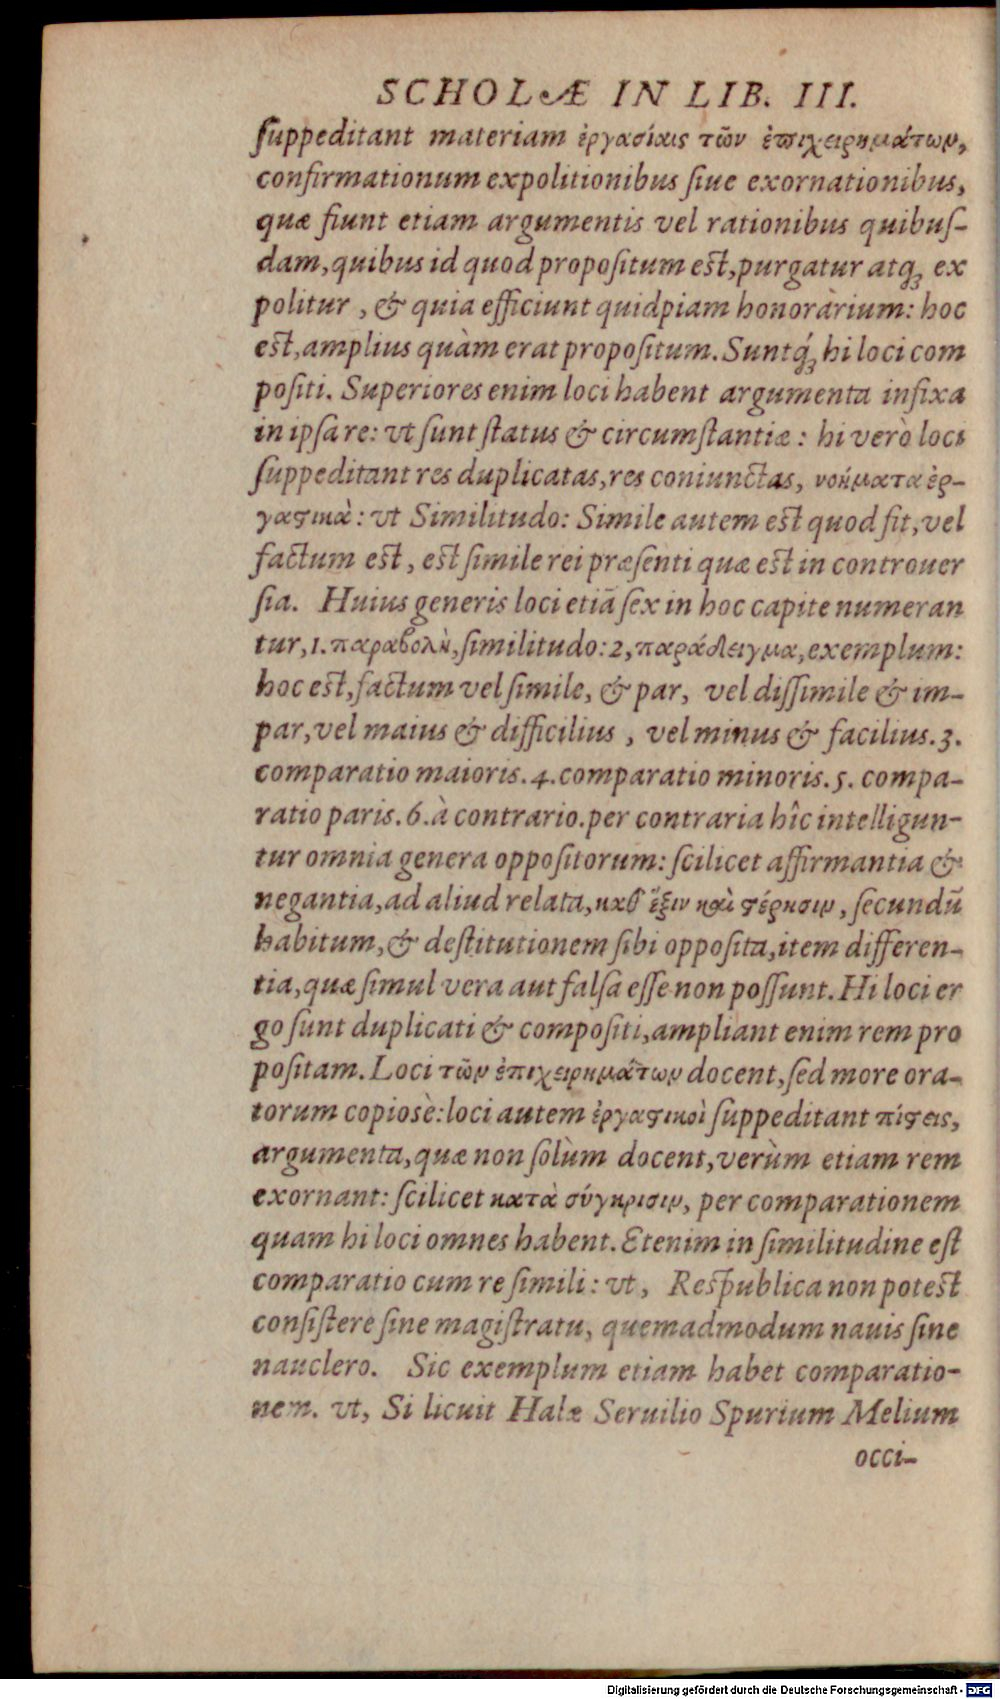 SCHOLÆ IN LIB. III.
ſuppeditant materiam ἐργασίαις τῶν ἐπιχειρημάτων,
confirmationum expolitionibus ſiue exornationibus,
quæ fiunt etiam argumentis vel rationibus quibuſ-
dam, quibus id quod propoſitum est, purgatur atq́ꝫ ex
politur, & quia efficiunt quidpiam honoràrium: hoc
est, amplius quàm erat propoſitum. Suntq́ꝫ hi loci com
poſiti. Superiores enim loci habent argumenta infixa
in ipſa re: vt ſunt ſtatus & circumſtantiæ: hi verò loci
ſuppeditant res duplicatas, res coniunctas, νοήματα ἐρ-
γαστικὰ: vt Similitudo: Simile autem est quod fit, vel
factum est, est ſimile rei præſenti quæ est in controuer
ſia. Huius generis loci etiã ſex in hoc capite numeran
tur, 1. παραβολὴ, ſimilitudo: 2, παράδειγμα, exemplum:
hoc est, factum vel ſimile, & par, vel diſſimile & im-
par, vel maius & difficilius, vel minus & facilius. 3.
comparatio maioris. 4. comparatio minoris. 5. compa-
ratio paris. 6. à contrario. per contraria hîc intelligun-
tur omnia genera oppoſitorum: ſcilicet affirmantia &
negantia, ad aliud relata, καθ' ἕξιν καὶ στέρησιν, ſecundũ
habitum, & deſtitutionem ſibi oppoſita, item differen-
tia, quæ ſimul vera aut falſa eſſe non poſſunt. Hi loci er
go ſunt duplicati & compoſiti, ampliant enim rem pro
poſitam. Loci τῶν ἐπιχειρημάτων docent, ſed more ora-
torum copiosè: loci autem ἐργαστικοὶ ſuppeditant πίστεις,
argumenta, quæ non ſolùm docent, verùm etiam rem
exornant: ſcilicet κατὰ σύγκρισιν, per comparationem
quam hi loci omnes habent. Etenim in ſimilitudine eſt
comparatio cum re ſimili: vt, Reſpublica non potest
conſiſtere ſine magiſtratu, quemadmodum nauis ſine
nauclero. Sic exemplum etiam habet comparatio-
nem. vt, Si licuit Halæ Seruilio Spurium Melium
occi-
Digitalisierung gefördert durch die Deutsche Forschungsgemeinschaft - DFG